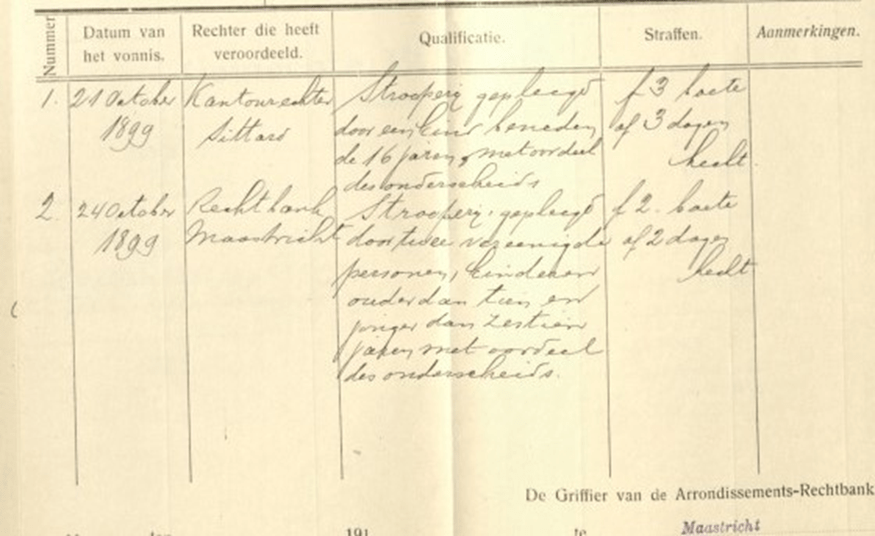 Nummer
Datum van het vonnis.
Rechter die heeft veroordeeld.
Qualificatie.
Straffen.
Aanmerkingen.
1.
21 October
1899
Kantonrechter
Sittard
Strooperij gepleegd
door een kind beneden
de 16 jaren, met oordeel
des onderscheids
f 3 boete
of 3 dagen
hecht.
2.
24 October
1899
Rechtbank
Maastricht
Strooperij, gepleegd
door twee vereenigde
personen, kinderen
ouder dan tien en
jonger dan zestien
jaren, met oordeel
des onderscheids.
f 2. boete
of 2 dagen
hecht
De Griffier van de Arrondissements-Rechtbank
191
te Maastricht